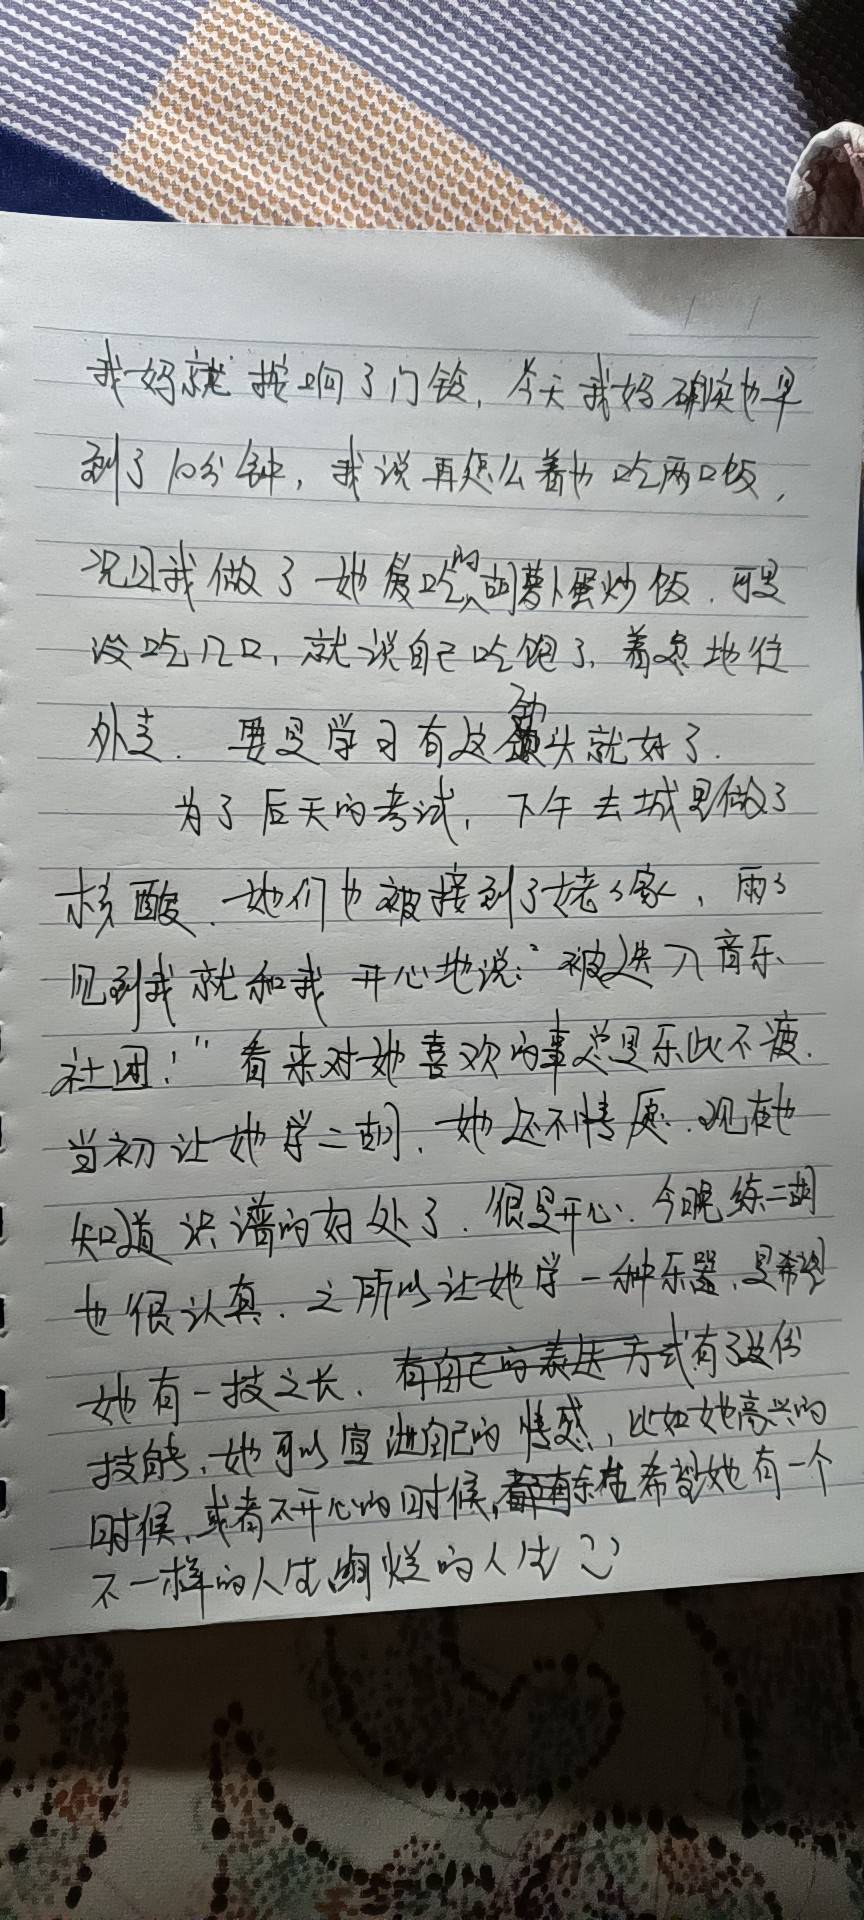 我妈就按响了门铃，今天我妈确实也早
到了10分钟，我说再怎么着也吃两口饭，
况且我做了她爱吃的胡萝卜蛋炒饭．可是
没吃几口，就说自己吃饱了，着急地往
外走．要是学习有这劲头就好了．
为了后天的考试，下午去城里做了
核酸．她们也被接到了姥姥家，雨雨
见到我就和我开心地说：“被选入音乐
社团！”看来对她喜欢的事总是乐此不疲．
当初让她学二胡，她还不情愿．现在也
知道识谱的好处了．很是开心．今晚练二胡
也很认真．之所以让她学一种乐器，是希望
她有一技之长、有自己的表达方式有了这份
技能，她可以宣泄自己的情感，比如她高兴的
时候，或者不开心的时候，希望她有一个
不一样的人生绚烂的人生